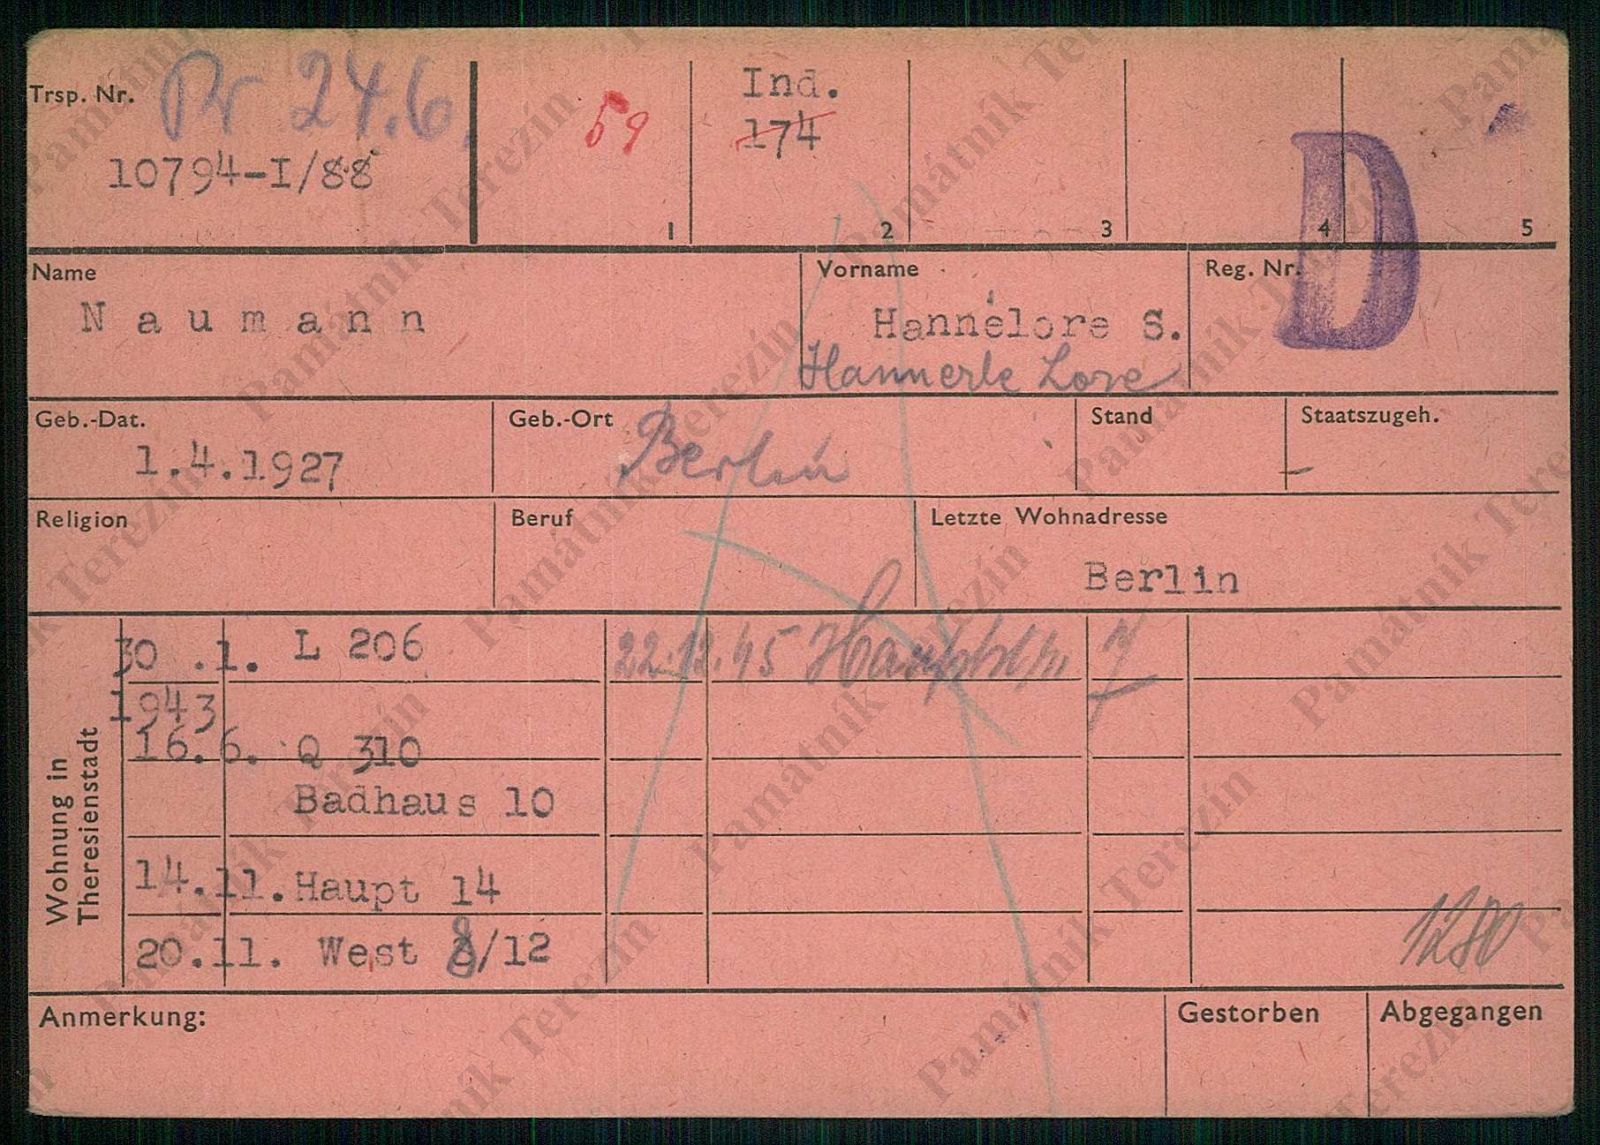 Trsp. Nr.
Pr 24.6.
10794-I/88
59
1
Ind.
174
2
3
4
5
D
Name
N a u m a n n
Vorname
Hannelore S.
Hannerle Lore
Reg. Nr.
Geb.-Dat.
1.4.1927
Geb.-Ort
Berlin
Stand
Staatszugeh.
Religion
Beruf
Letzte Wohnadresse
Berlin
Wohnung in
Theresienstadt
30 .1. L 206
1943
16.6. Q 310
Badhaus 10
14.11. Haupt 14
20.11. West 8/12
7
1280
Anmerkung:
Gestorben
Abgegangen
Památník Terezín